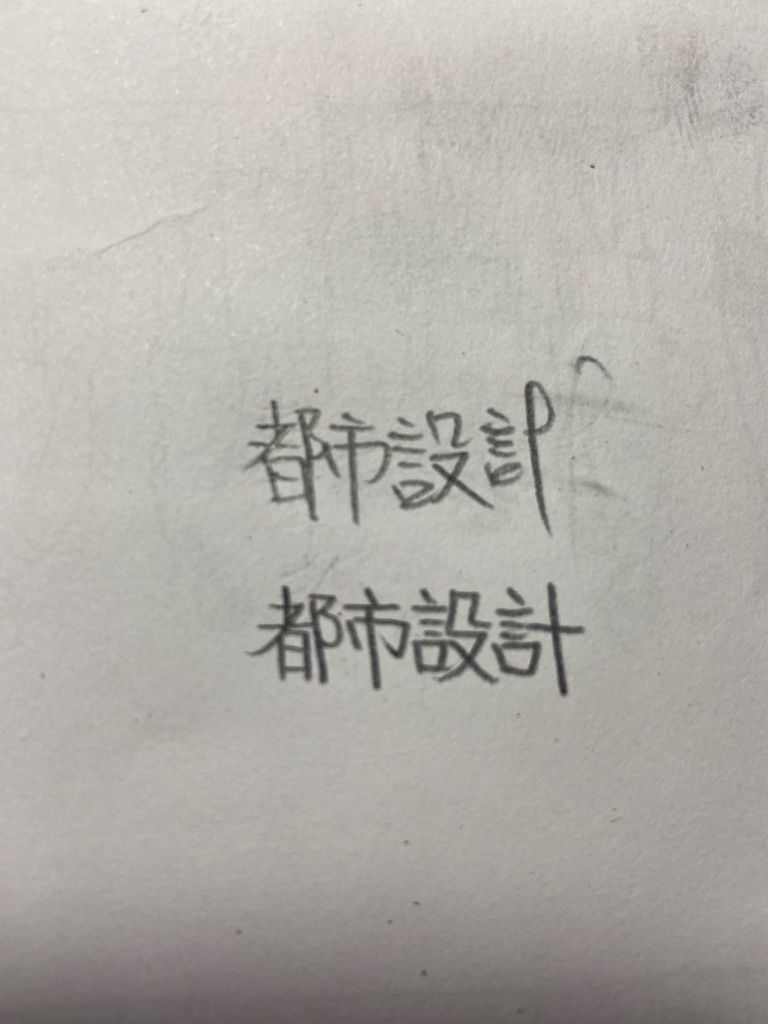 都市設計
都市設計